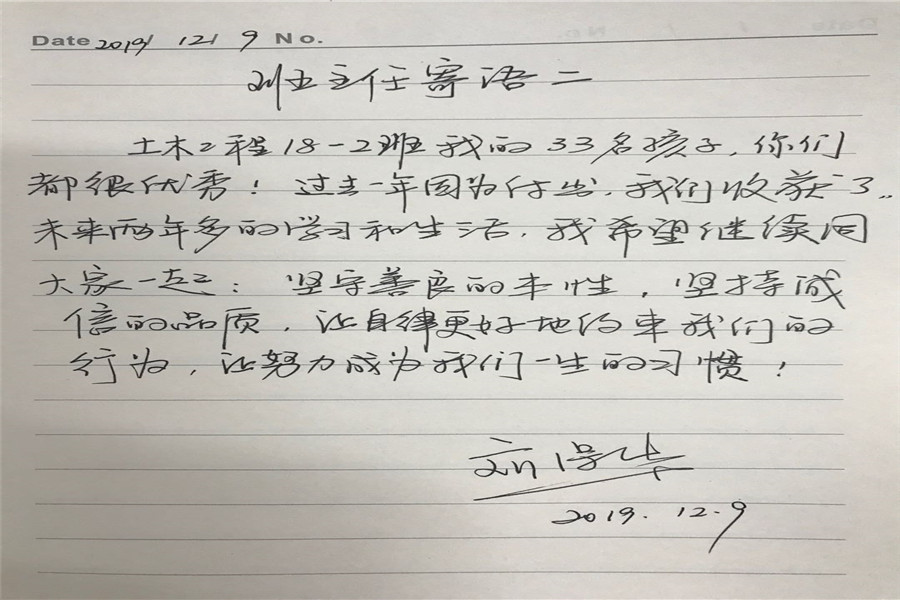 Date 2019/ 12/ 9 No.
班主任寄语二
土木工程18-2班我的33名孩子,你们
都很优秀!过去一年因为付出,我们收获了..
未来两年多的学习和生活,我希望继续同
大家一起:坚守善良的本性,坚持诚
信的品质,让自律更好地约束我们的
行为,让努力成为我们一生的习惯!
刘保华
2019.12.9